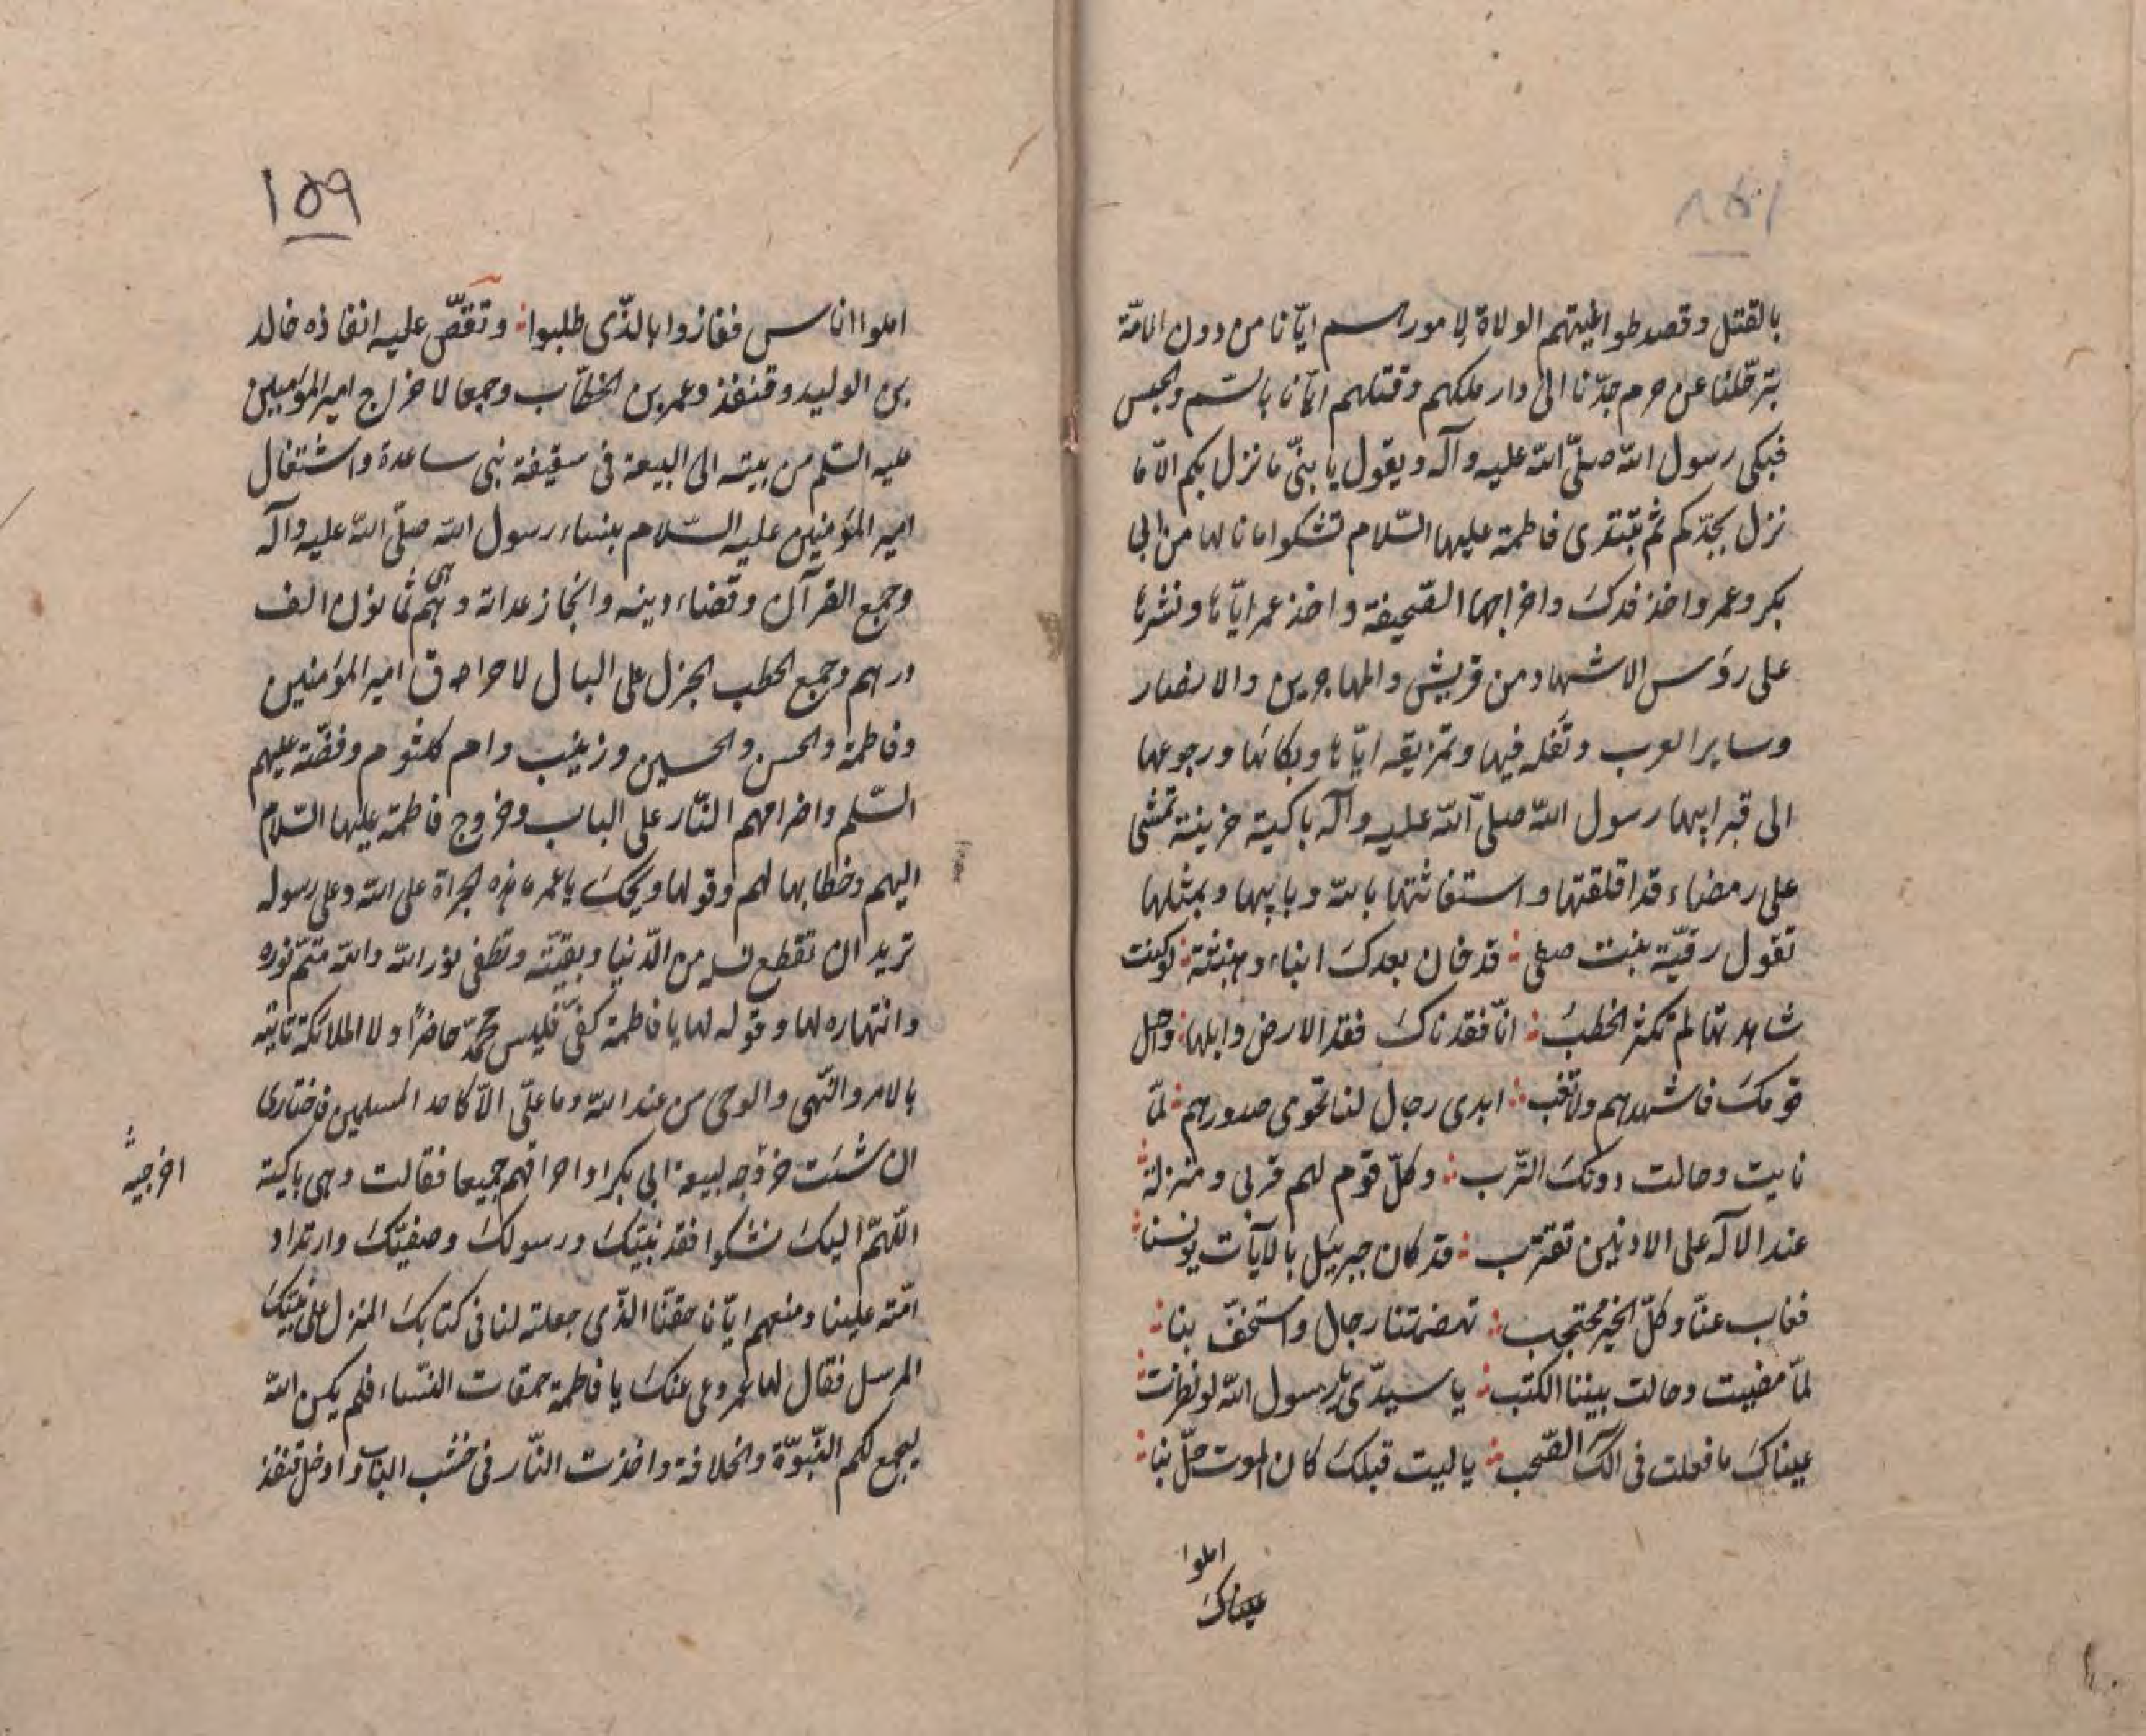 ١٥٨
بالقتل وقصد طواغيتهم الولاة لامورهم ايّانا من دون الامّة
بترحّلنا عن حرم جدّنا الى دار ملكهم وقتلهم ايّانا بالسّم والحبس
فبكى رسول الله صلّى الله عليه وآله ويقول يا بنىّ ما نزل بكم الّا ما
نزل بجدّكم ثم تبتدى فاطمة عليها السّلام تشكوا ما نالها من ابى
بكر وعمر واخذ فدك واخراجها الصّحيفة واخذ عمر ايّاها ونشرها
على رؤس الاشهاد من قريش والمهاجرين والانصار
وساير العرب وتفله فيها وتمزيقه ايّاها وبكائها ورجوعها
الى قبر ابيها رسول الله صلّى الله عليه وآله باكية حزينة تمشى
على رمضاء قد اقلقتها واستغاثتها بالله وبابيها وتمثلها
تقول رقيّة بنت صفى ∴ قد خان بعدك انباء وهنبثة ∴ لو كنت
شاهدتها لم تكثر الخطب ∴ انّا فقدناك فقد الارض وابلها ∴ وحل
قومك فاشهدهم ولا تغب ∴ ابدى رجال لنا نحوى صدورهم ∴ لمّا
نايت وحالت دونك التّرب ∴ وكلّ قوم لهم قربى ومنزلة ∴
عند الاله على الادنين تقترب ∴ قد كان جبرئيل بالايآت يونسنا ∴
فغاب عنّا وكلّ الخير محتجب ∴ تهضمتنا رجال واستخفّ بنا ∴
لمّا مضيت وحالت بيننا الكتب ∴ يا سيدّى يا رسول الله لو نظرت ∴
عيناك ما فعلت فى الك الصّحب ∴ يا ليت قبلك كان الموت حلّ بنا ∴
املوا
عيناك
١٥٩
املوا اناس ففازوا بالذّى طلبوا ∴ وتقصّ عليه انفاذه خالد
بن الوليد وقنفذ وعمر بن الخطّاب وجمعا لاخراج امير المؤمنين
عليه السّلم من بيته الى البيعة فى سقيفة بنى ساعدة واشتغال
امير المؤمنين عليه السّلام بنساء رسول الله صلّى الله عليه وآله
وجمع القرآن وقضاء دينه وانجاز عداته وهى ثمانون الف
درهم وجمع الحطب الجزل على البال لاحراق امير المؤمنين
وفاطمة والحسن والحسين وزينب وام كلثوم وفضّة عليهم
السّلم واضرامهم النّار على الباب وخروج فاطمة عليها السّلام
اليهم وخطابها لهم وقولها ويحك يا عمر ما هذه الجراة على الله وعلى رسوله
تريد ان تقطع نسله من الدّنيا وبقيّته وتطفى نور الله والله متمّ نوره
وانتهاره لها وقوله لها يا فاطمة كفىّ فليس محمّد حاضرًا ولا الملائكة تاتيه
بالامر والنّهى والوحى من عند الله وما علىّ الّا كاحد المسلمين فاختارى
ان شئت خروجه لبيعة ابى بكر او احراقهم جميعا فقالت وهى باكية
اللّهمّ اليك نشكوا فقد نبيّك ورسولك وصفيّك وارتداد
امّته علينا ومنعهم ايّانا حقّنا الذّى جعلته لنا فى كتابك المنزل على نبيّك
المرسل فقال لها عمر دعى عنك يا فاطمة حمقات النّساء فلم يكن الله
ليجمع لكم النّبوّة والخلافة واخذت النّار فى خشب الباب وادخل قنفذ